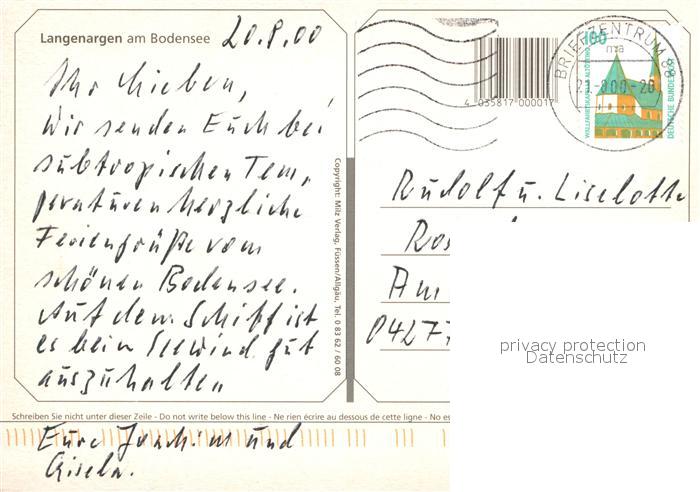 Langenargen am Bodensee 20.8.00
Ihr Lieben,
Wir senden Euch bei
subtropischen Tem-
peraturen herzliche
Feriengrüße vom
schönen Bodensee.
Auf dem Schiff ist
es beim Seewind gut
auszuhalten.
Schreiben Sie nicht unter dieser Zeile - Do not write below this line - Ne rien écrire au dessous de cette ligne - No es
Eure Joachim und
Gisela.
Copyright: Milz Verlag, Füssen/Allgäu, Tel. 0 83 62 / 60 08
4 035817 000017
BRIEFZENTRUM 88
21.-8.00-20
100
DEUTSCHE BUNDESPOST
Rudolf u. Liselotte
Ros
Am
04277
privacy protection
Datenschutz